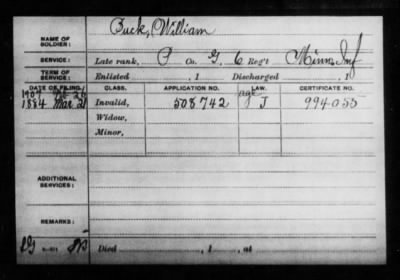 NAME OF SOLDIER: Buck, William
SERVICE: Late rank, P Co. G, 6 Reg't Minn. Inf
TERM OF SERVICE: Enlisted , 1 Discharged , 1
DATE OF FILING. CLASS. APPLICATION NO. LAW. CERTIFICATE NO.
1907 age
1884 Mar 21 Invalid, 508742 J 994055
Widow,
Minor,
ADDITIONAL SERVICES:
REMARKS:
Died , 1 , at